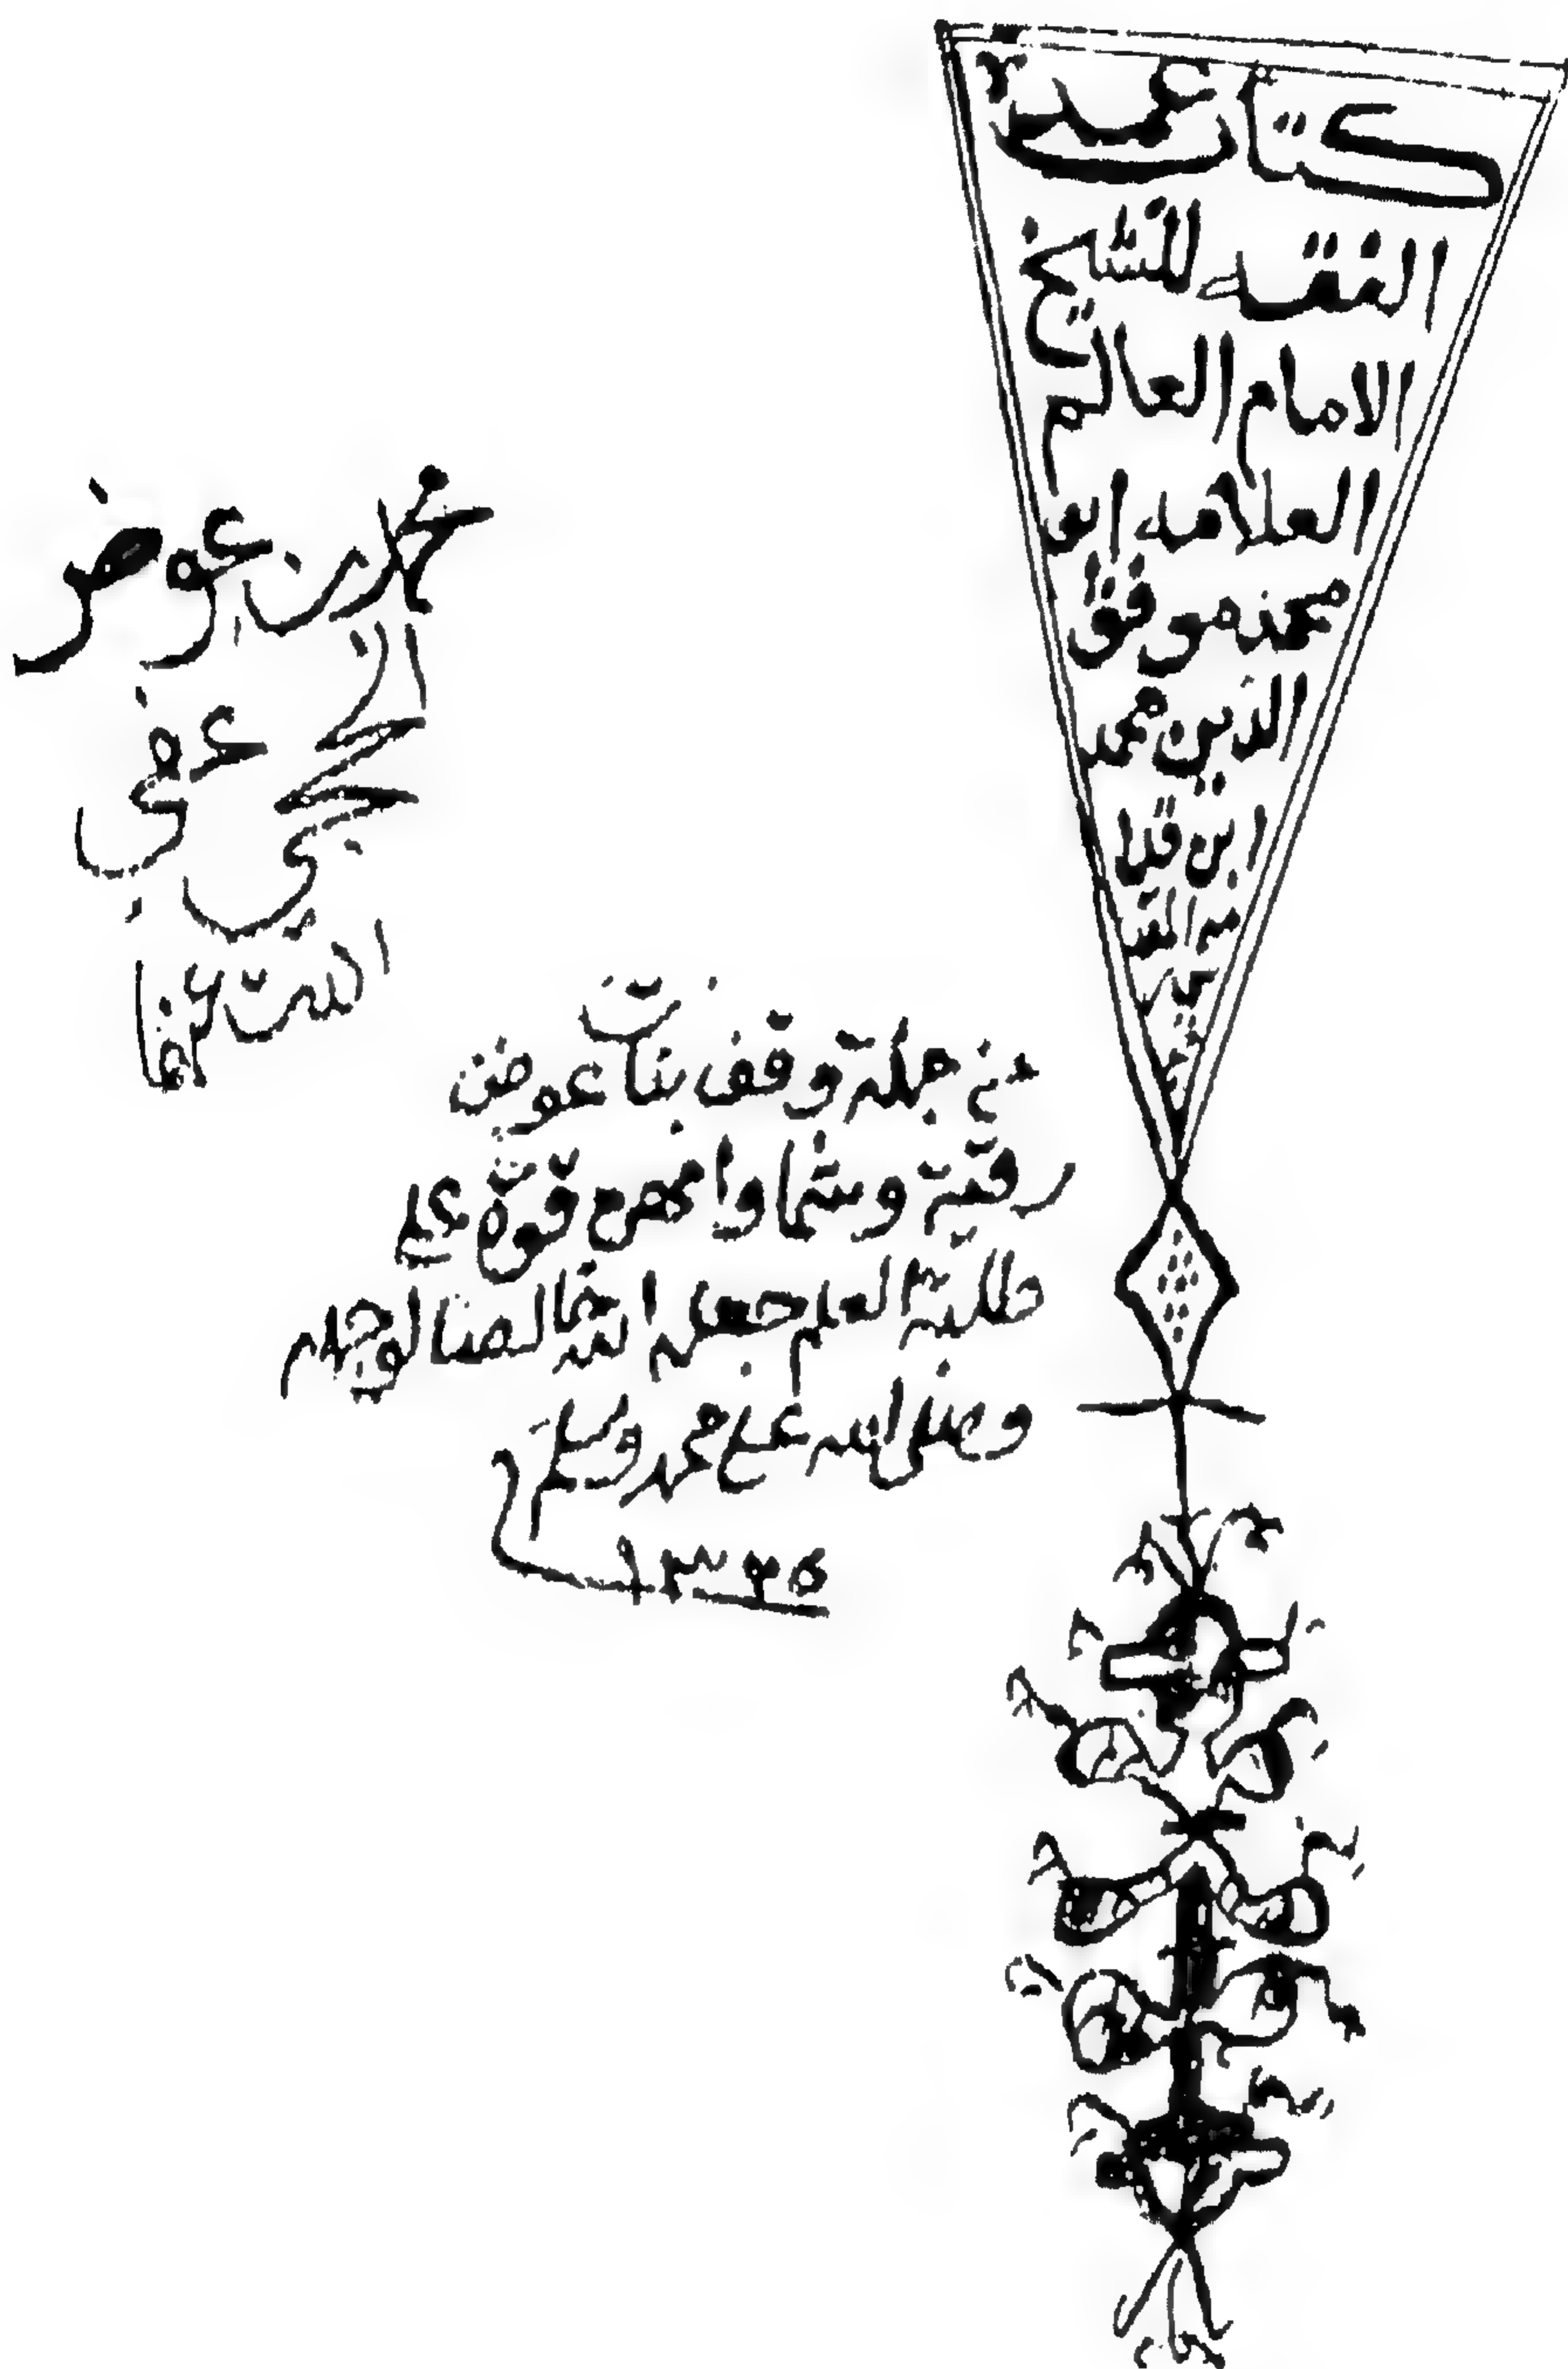 كتاب عمدة
الفقه للشيخ
الامام العالم
العلامه ابو
محمد موفق
الدين محمد
ابن قدا
مه
محمد بن عوض
عفى
الله
من جملة وقف بنات عوض
رقية وشما وانهن قوة على
طلبة العلم جعله الله خالصا لوجهه
وصلى الله على محمد وسلم
١٣٢٥